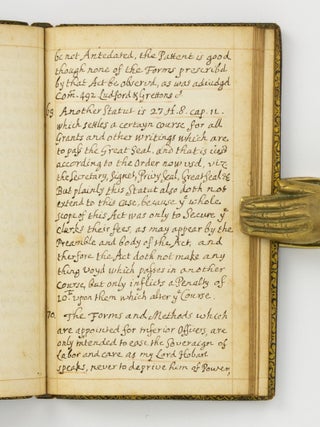 be not Antedated, the Pattent is good
though none of the Forms prescribd
by that Act be observd, as was adiudgd
Com. 492 Ludford & Grettons c
69 Another Statut is 27 H. 8. cap. 11.
which settles a certayn course for all
Grants and other Writings which are
to paß the Great Seal. and that is
according to the Order now usd, viz
the Secretary, Signet, Privy Seal, Great Seal &c
But plainly this Statut also doth not
extend to this case, because yͤ whole
scope of this Act was only to Secure yͤ
clerks these fees, as may appear by the
Preamble and body of the Act, and
therfore the Act doth not make any
thing voyd which passes in another
Course, but only inflicts a Penalty of
10ˡ. upon them which alter yͭ Course.
70. The Forms and Methods which
are appointed for Inferior Officers, are
only intended to ease the Soveraign of
Labor and care, as my Lord Hobart
speaks, never to deprive him of Power,